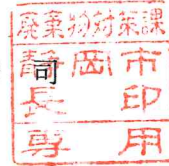 廃棄物対策課
静岡市
司
長印
専用